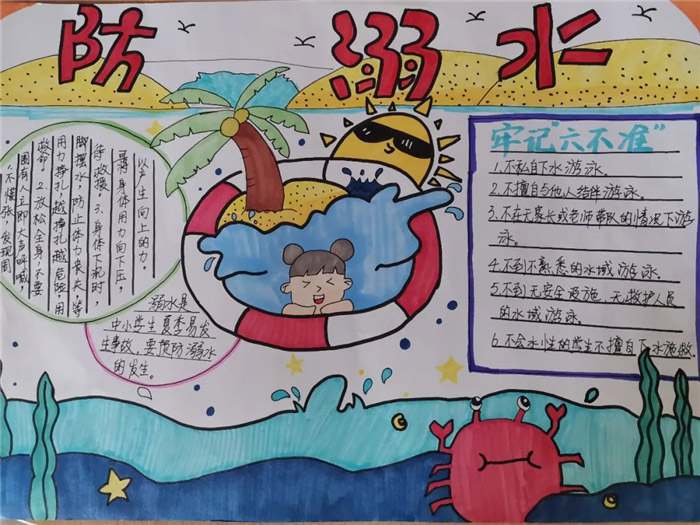 防溺水
1.不慌张,发现周
围有人立即大声呼喊,
救命。2.放松全身,不要
用力挣扎,越挣扎越危险,用
脚摆水,防止体力丧失,等
待救援。3.身体下沉时,
将身体用力向下压,
以产生向上的力。
溺水是
中小学生夏季易发
生事故,要预防溺水
的发生。
牢记“六不准”
1.不私自下水游泳.
2.不擅自与他人结伴游泳.
3.不在无家长或老师带队的情况下游
泳.
4.不到不熟悉的水域游泳.
5.不到无安全设施、无救护人员
的水域游泳.
6.不会水性的学生不擅自下水施救